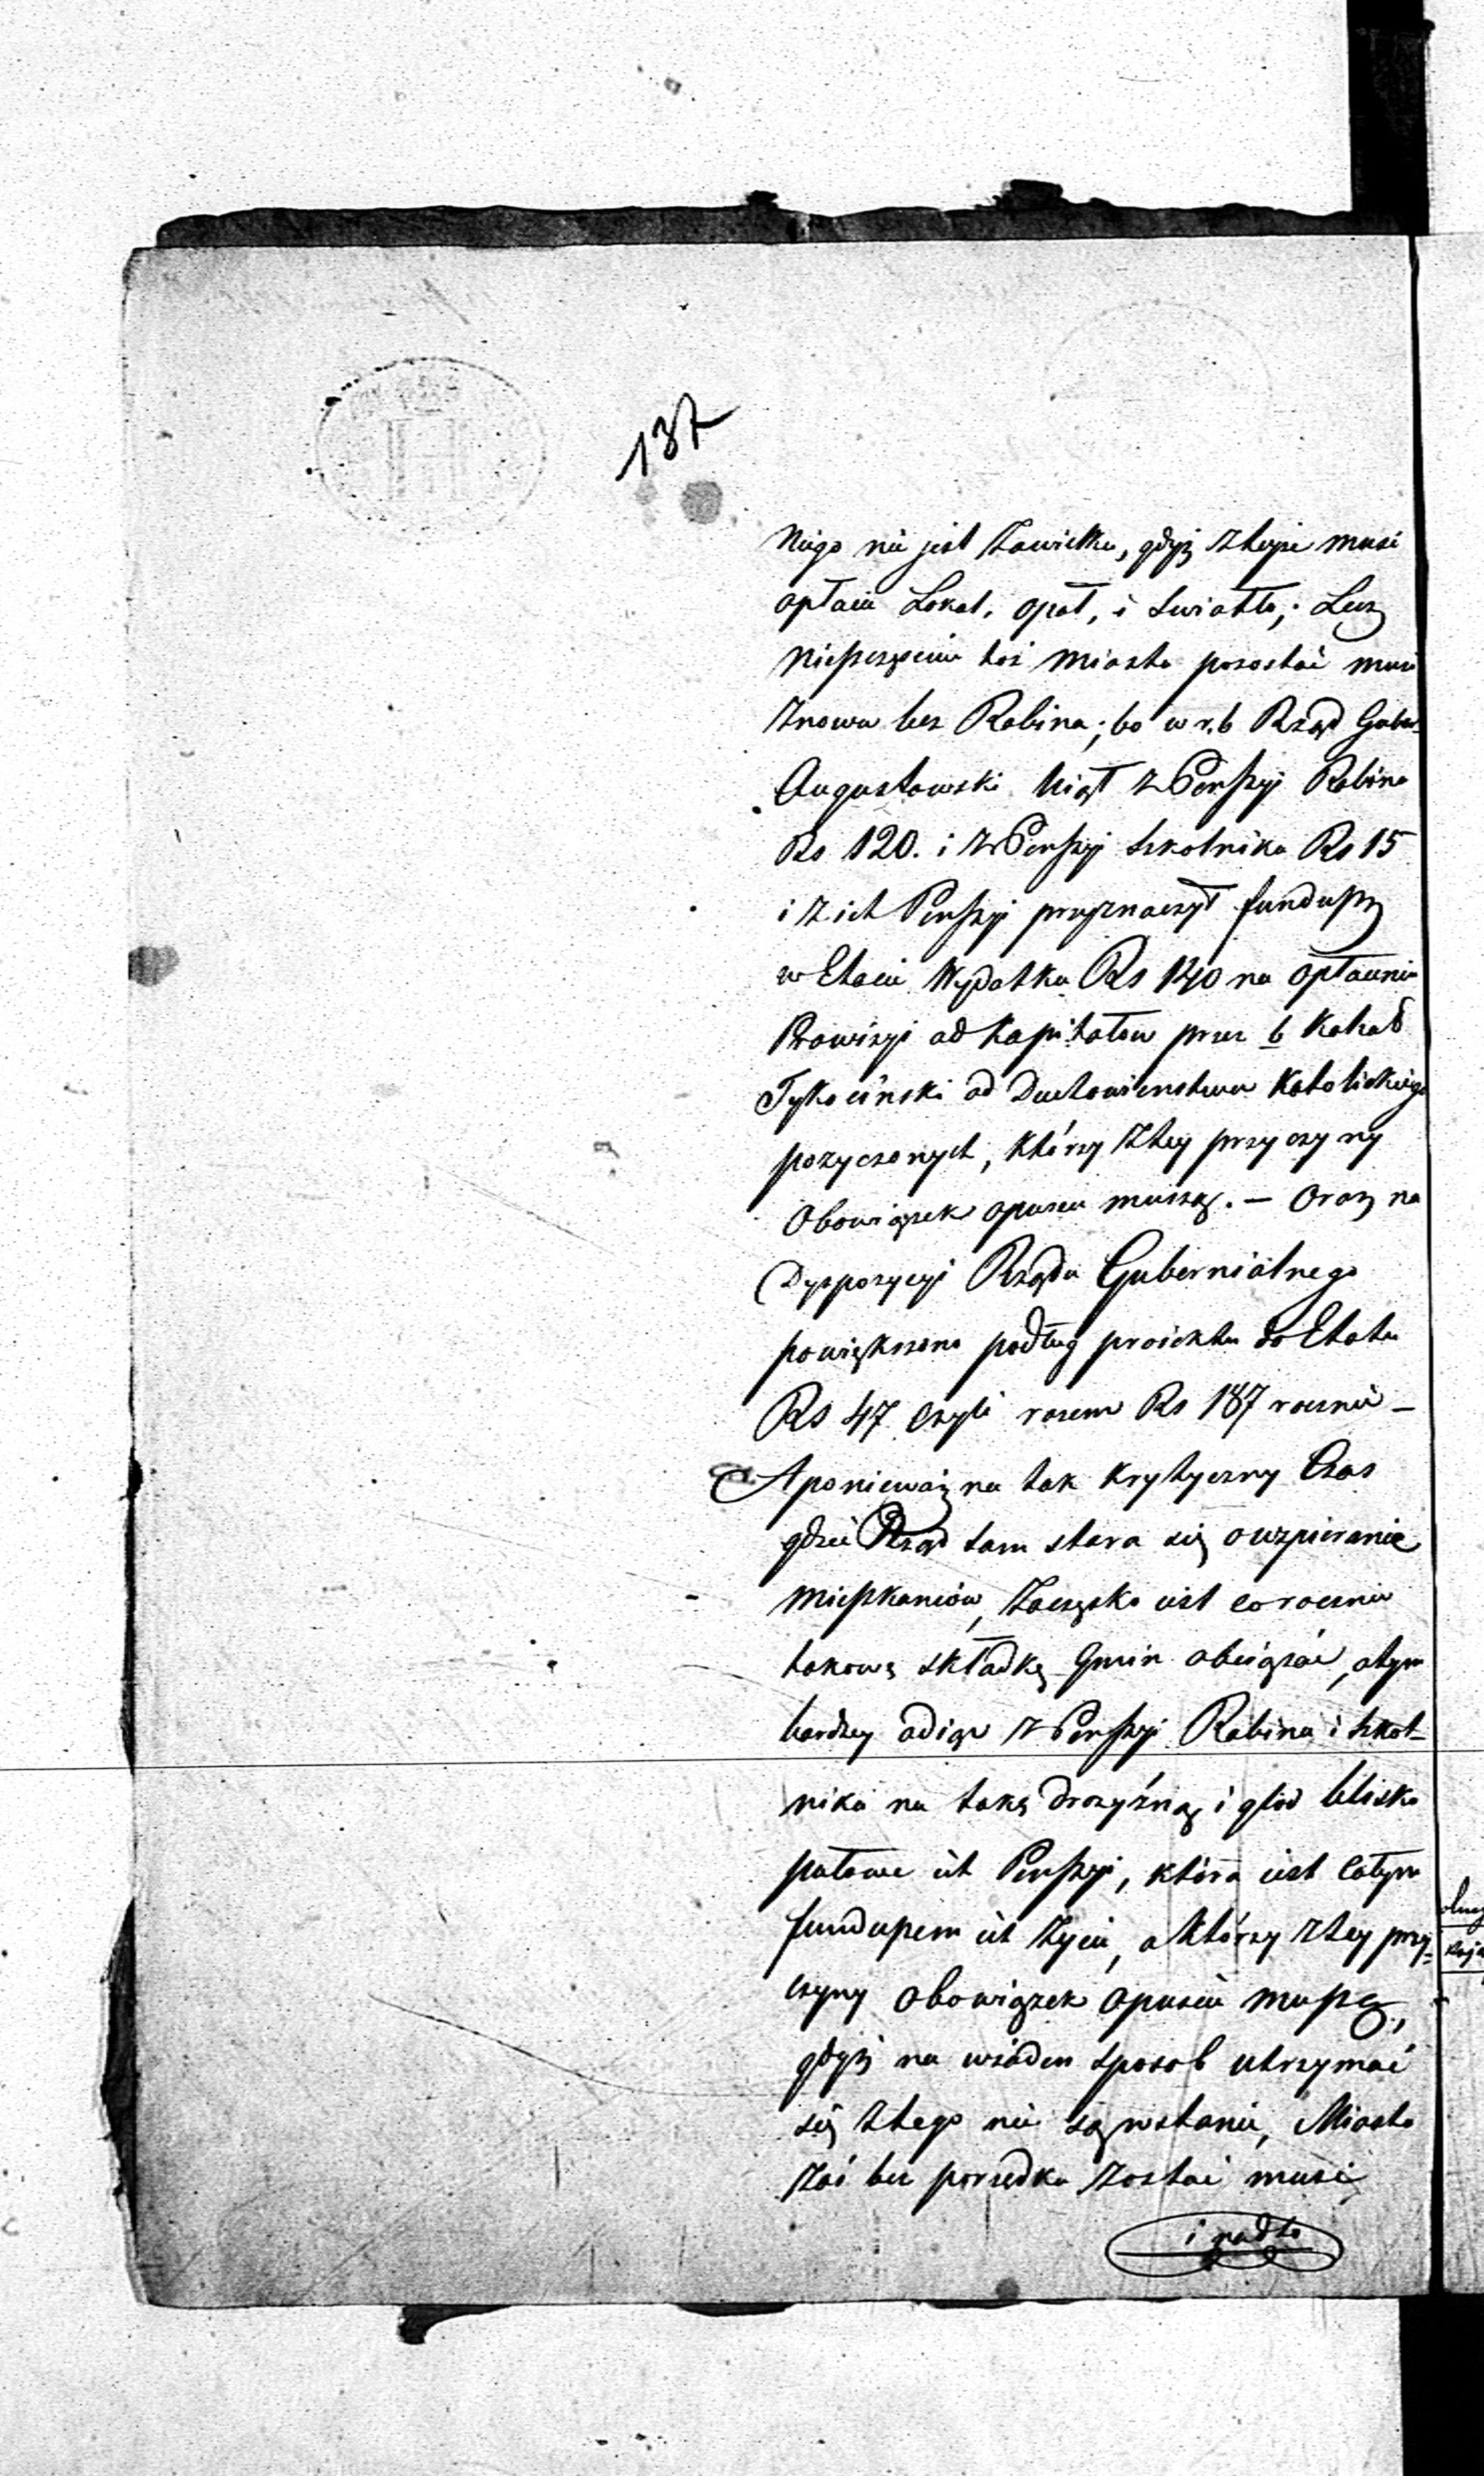 137
Niego nie jest Zawielka, gdyż ztejże musi
opłacić Lokal, opał, i swiatło; Lecz
Nieszczęściu toż Miasto pozostać musi
znowu bez Rabina; bo w r.b Rząd Guber-
Augustowski Uiął z Penszyi Rabina
Rs 120. i z Penszyi Szkolnika Rs 15
i z ich Penszyi przyznaczył fundusz
w Etacie Wydatku Rs 140 na opłacenie
Prowizyi od Kapitałow przez b Kahał
Tykocinski od Duchowienstwa Katolickiego
pozyczonych, którzy ztey przyczyny
Obowiązek opuscic muszą. — Oraz na
Dyspozycyi Rządu Gubernialnego
powiększono podług proiektu do Etatu
Rs 47 czyli razem Rs 187 rocznie —
A ponieważ na tak krytyczny Czas
gdzie Rząd sam stara się o wzpieranie
Mieszkańców, Zaciężko iest corocznie
takową składkę Gmin obciążać, a tym
bardzey odiąc z Penszyi Rabina i szkol-
nika na taką drozyźnę i głod blisko
połowe ich Penszyi, która iest całym
funduszem ich życia, a którzy ztey przy-
czyny obowiązek opuscić muszą,
gdyż na wżaden sposob utrzymać
się ztego nie są wstanie, Miasto
zaś bez porzedku zostać musi
i nadto